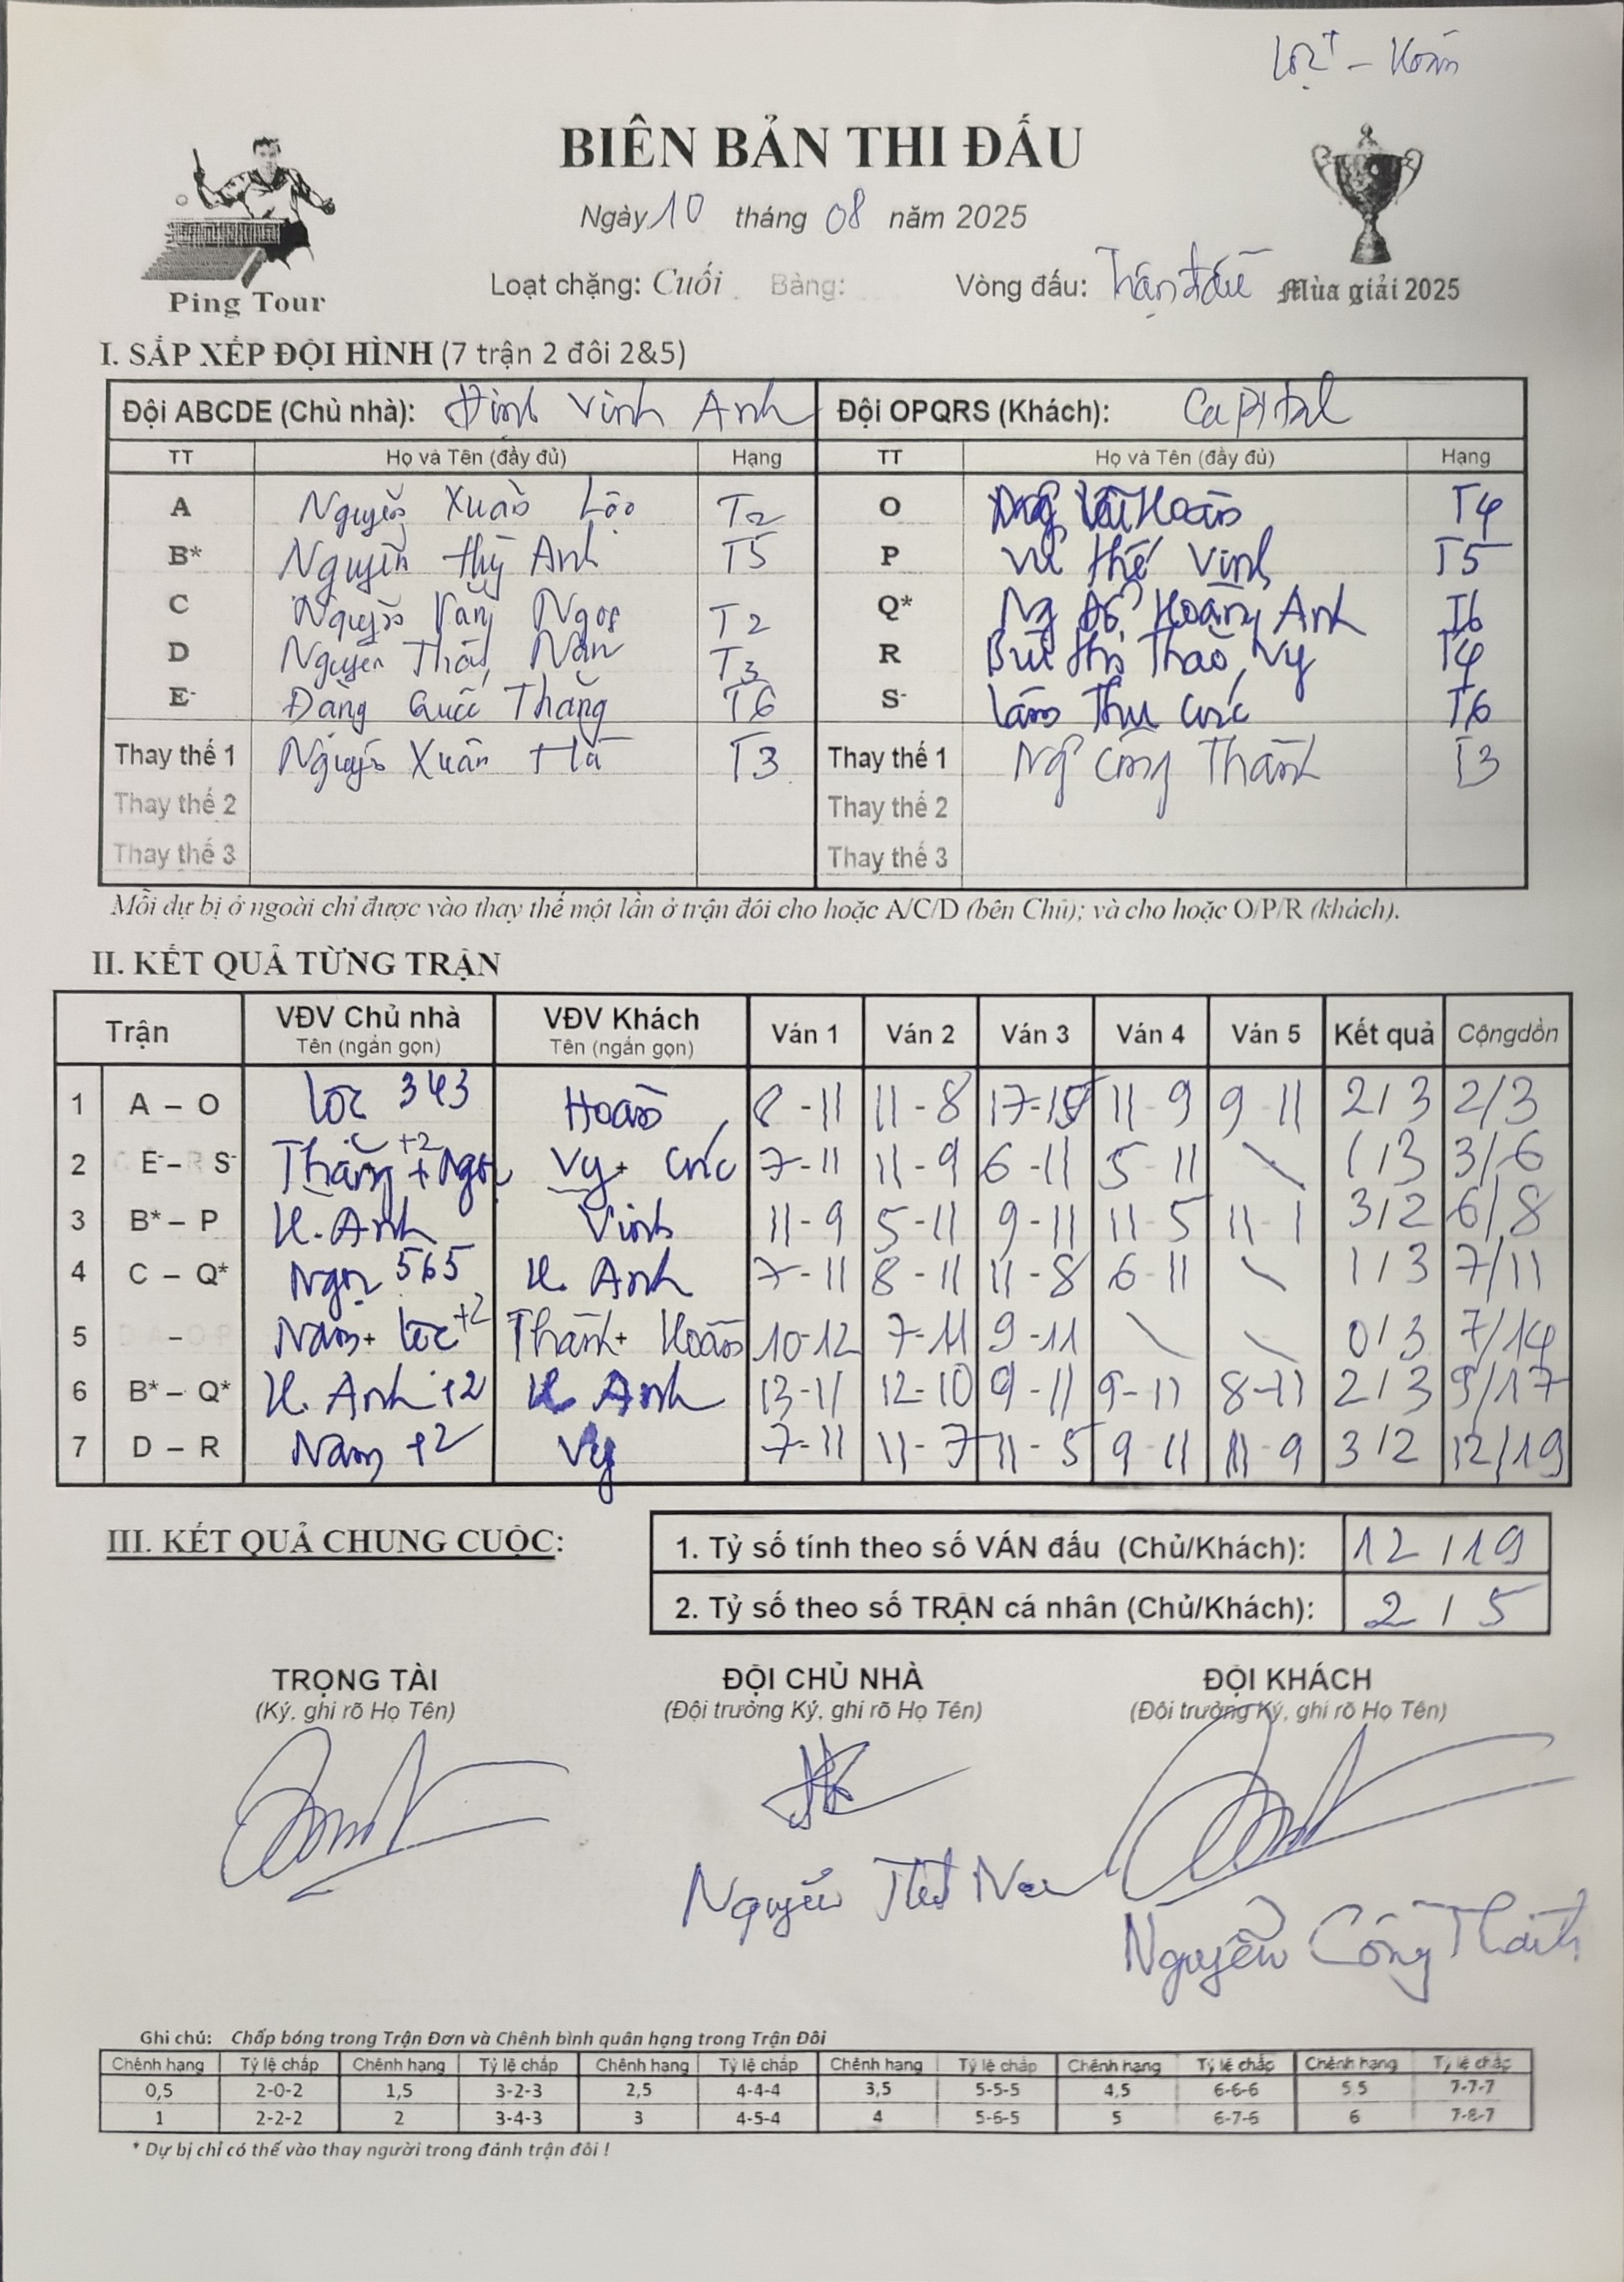 Lộc+ - Hoàn
BIÊN BẢN THI ĐẤU
Ngày 10 tháng 08 năm 2025
Loạt chặng: Cuối Bảng: Vòng đấu: Trận đấu
Ping Tour
Mùa giải 2025
I. SẮP XẾP ĐỘI HÌNH (7 trận 2 đôi 2&5)
Đội ABCDE (Chủ nhà): Đinh Vinh Anh Đội OPQRS (Khách): Capital
TT Họ và Tên (đầy đủ) Hạng TT Họ và Tên (đầy đủ) Hạng
A Nguyễn Xuân Lộc T2 O Hoàn T4
B* Nguyễn Anh T5 P Vũ Thế Vinh T5
C Nguyễn Ngọc T2 Q* Ng Đỗ Hoàng Anh T6
D Nguyễn Thái Nam T3 R Bùi Thị Thảo Vy T4
E- Đặng Quốc Thắng T6 S- Lâm Thu Cúc T6
Thay thế 1 Nguyễn Xuân Hà T3 Thay thế 1 Ng Công Thành T3
Thay thế 2 Thay thế 2
Thay thế 3 Thay thế 3
Mỗi dự bị ở ngoài chỉ được vào thay thế một lần ở trận đôi cho hoặc A/C/D (bên Chủ); và cho hoặc O/P/R (khách).
II. KẾT QUẢ TỪNG TRẬN
Trận VĐV Chủ nhà VĐV Khách Ván 1 Ván 2 Ván 3 Ván 4 Ván 5 Kết quả Cộng dồn
Tên (ngắn gọn) Tên (ngắn gọn)
1 A – O Lộc 343 Hoàn 8-11 11-8 17-15 11-9 9-11 2/3 2/3
2 E-– S- Thắng+Ngọc +2 Vy+ Cúc 7-11 11-9 6-11 5-11 \ 1/3 3/6
3 B* – P H. Anh Vinh 11-9 5-11 9-11 11-5 11-1 3/2 6/8
4 C – Q* Ngọc 565 H. Anh 7-11 8-11 11-8 6-11 \ 1/3 7/11
5 - Nam+ Lộc+2 Thành+ Hoàn 10-12 7-11 9-11 \ \ 0/3 7/14
6 B* – Q* H. Anh +2 H. Anh 13-11 12-10 9-11 9-11 8-11 2/3 9/17
7 D – R Nam +2 Vy 7-11 11-7 11-5 9-11 11-9 3/2 12/19
III. KẾT QUẢ CHUNG CUỘC:
1. Tỷ số tính theo số VÁN đấu (Chủ/Khách): 12/19
2. Tỷ số theo số TRẬN cá nhân (Chủ/Khách): 2/5
TRỌNG TÀI ĐỘI CHỦ NHÀ ĐỘI KHÁCH
(Ký, ghi rõ Họ Tên) (Đội trưởng Ký, ghi rõ Họ Tên) (Đội trưởng Ký, ghi rõ Họ Tên)
Nguyễn Thái Nam
Nguyễn Công Thành
Ghi chú: Chấp bóng trong Trận Đơn và Chênh bình quân hạng trong Trận Đôi
Chênh hạng Tỷ lệ chấp Chênh hạng Tỷ lệ chấp Chênh hạng Tỷ lệ chấp Chênh hạng Tỷ lệ chấp Chênh hạng Tỷ lệ chấp Chênh hạng Tỷ lệ chấp
0,5 2-0-2 1,5 3-2-3 2,5 4-4-4 3,5 5-5-5 4,5 6-6-6 5,5 7-7-7
1 2-2-2 2 3-4-3 3 4-5-4 4 5-6-5 5 6-7-6 6 7-8-7
* Dự bị chỉ có thể vào thay người trong đánh trận đôi !